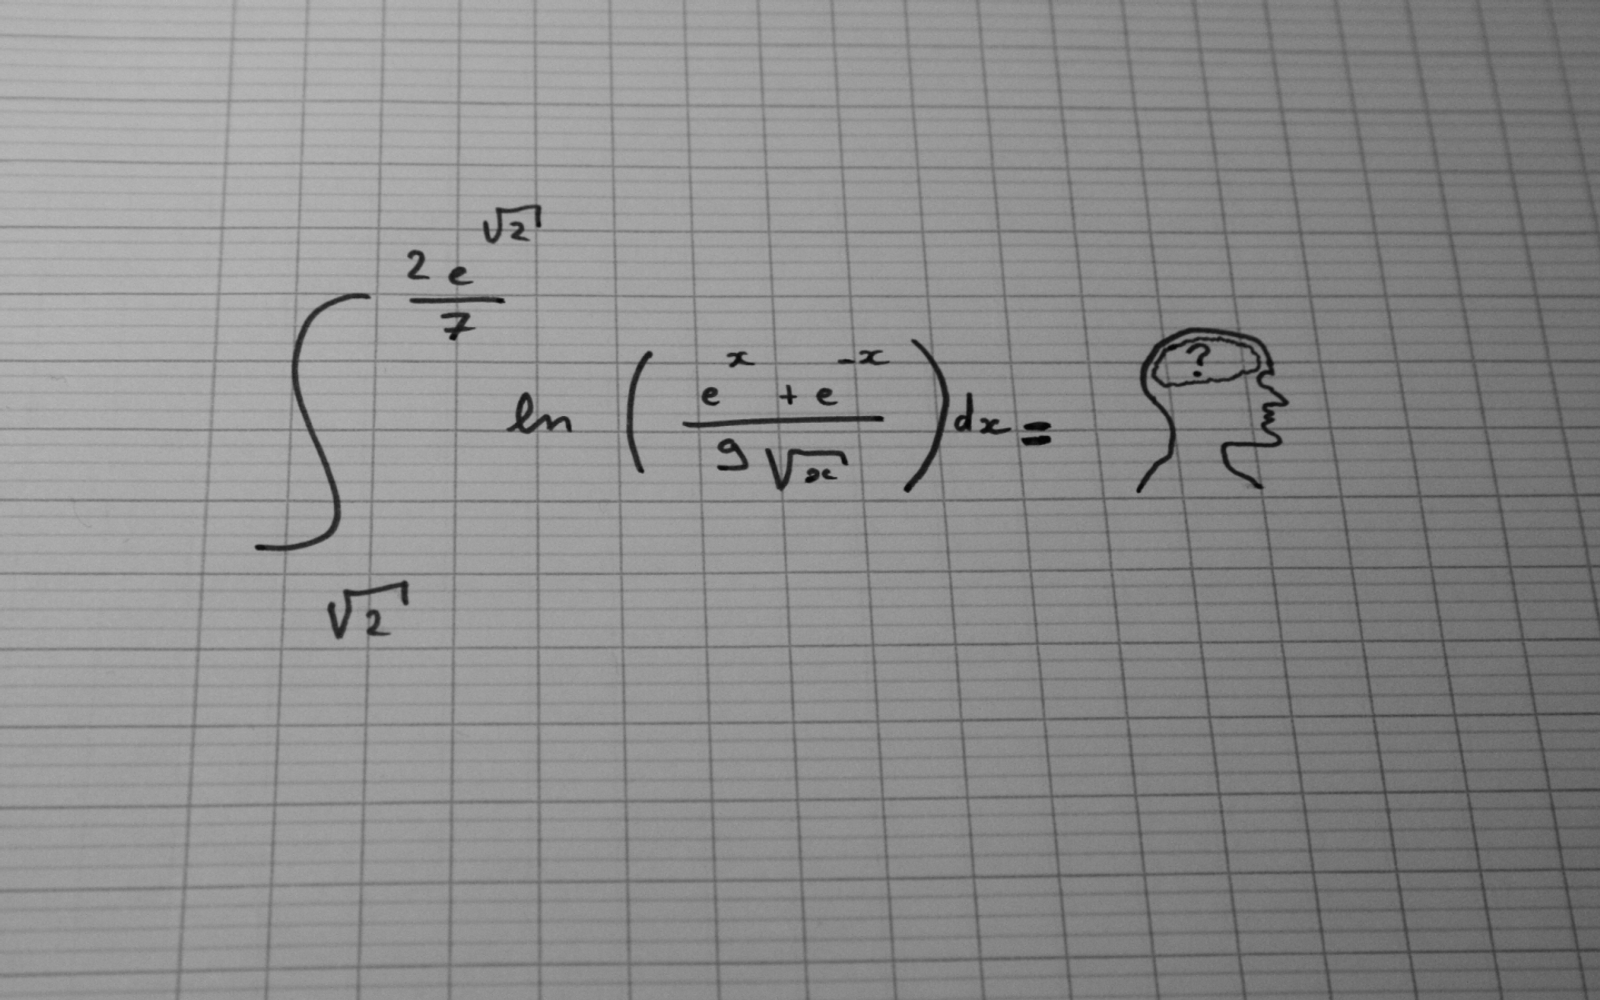 ∫_{√2}^{(2 e^{√2})/7} ln ( (e^x + e^{-x}) / (9 √x) ) dx = ?